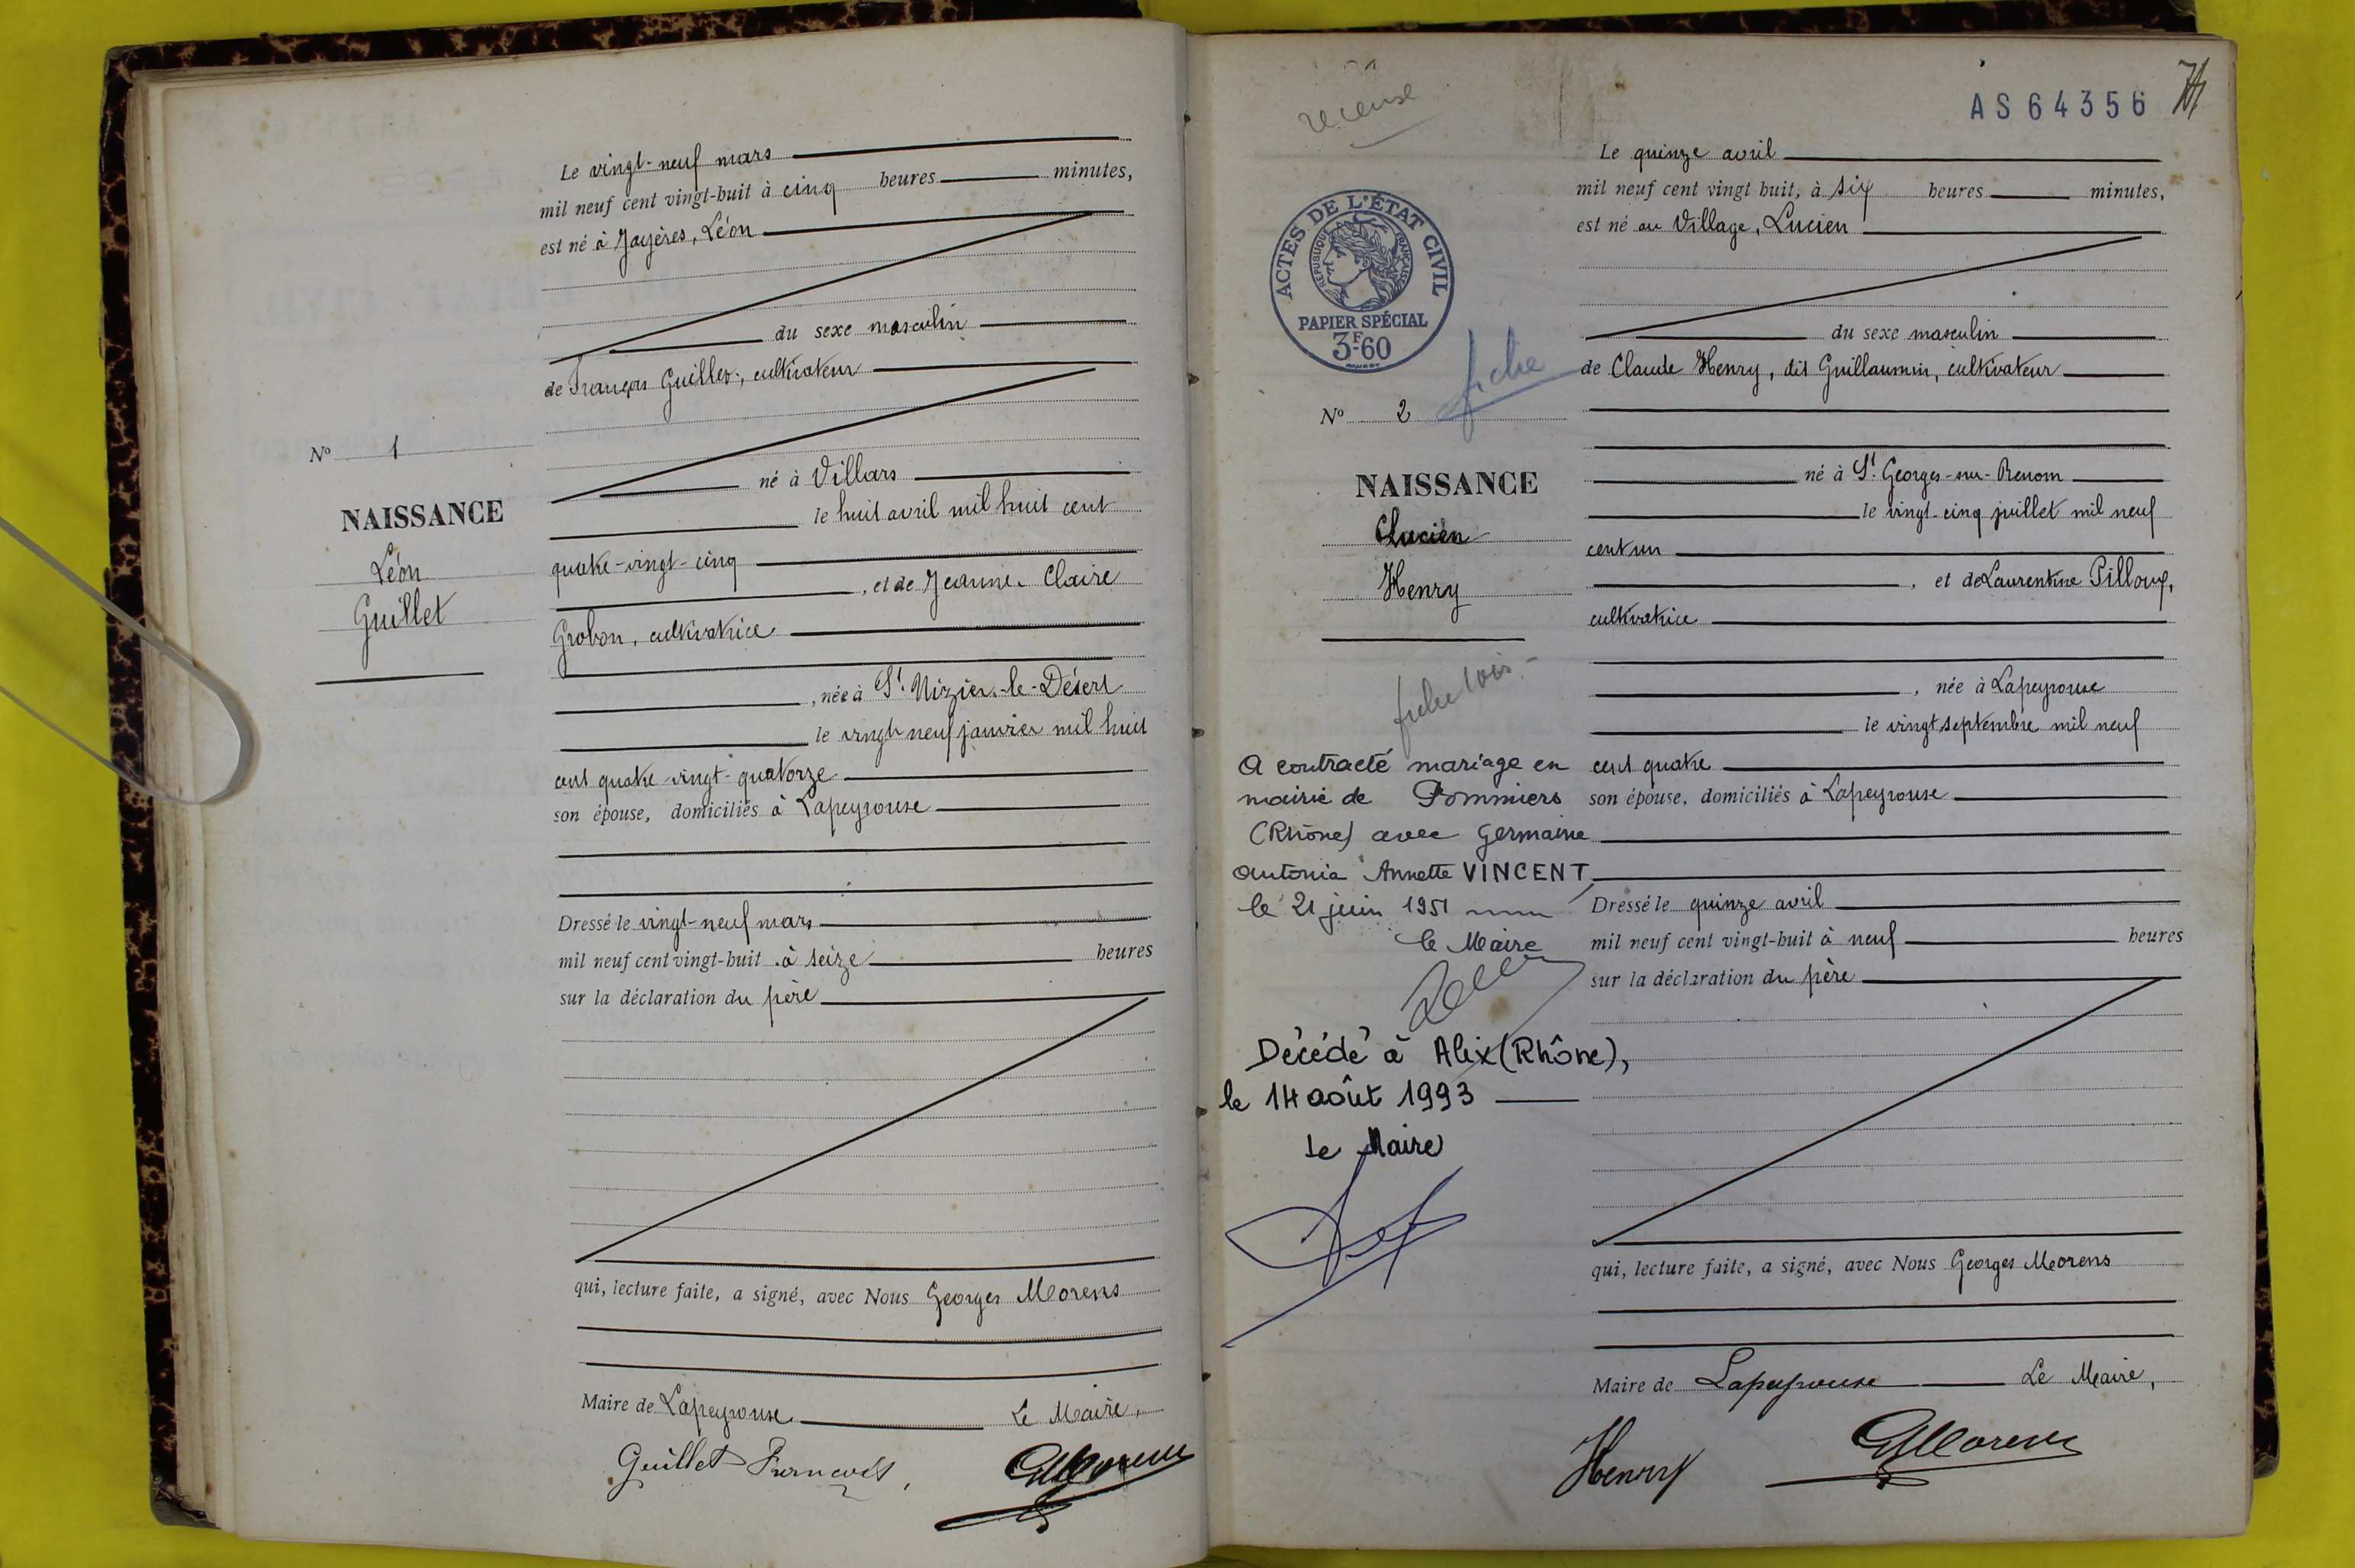 Le vingt-neuf mars
mil neuf cent vingt-huit à cinq heures minutes,
est né à Jayères, Léon
du sexe masculin
de François Guillet, cultivateur
né à Villars
le huit avril mil huit cent
quatre-vingt-cinq
, et de Jeanne Claire
Grobon, cultivatrice
, née à St. Nizier-le-Désert
le vingt neuf janvier mil huit
cent quatre vingt-quatorze
son épouse, domiciliés à Lapeyrouse
Dressé le vingt-neuf mars
mil neuf cent vingt-huit à seize heures
sur la déclaration du père
qui, lecture faite, a signé, avec Nous Georges Morens
Maire de Lapeyrouse Le Maire,
Guillet François
GMorens
No 1
NAISSANCE
Léon
Guillet
AS64356
recensé
Le quinze avril
mil neuf cent vingt huit, à six heures minutes,
est né au Village, Lucien
du sexe masculin
de Claude Henry, dit Guillaumin, cultivateur
né à St. Georges-sur-Renom
le vingt-cinq juillet mil neuf
cent un
, et de Laurentine Pilloux,
cultivatrice
, née à Lapeyrouse
le vingt septembre mil neuf
cent quatre
son épouse, domiciliés à Lapeyrouse
Dressé le quinze avril
mil neuf cent vingt-huit à neuf heures
sur la déclaration du père
qui, lecture faite, a signé, avec Nous Georges Morens
Maire de Lapeyrouse Le Maire,
Henry
GMorens
ACTES DE L'ÉTAT CIVIL
RÉPUBLIQUE FRANÇAISE
PAPIER SPÉCIAL
3F60
fiche
No 2
NAISSANCE
Lucien
Henry
fiche
A contracté mariage en
mairie de Pommiers
(Rhône) avec Germaine
Antonia Annette VINCENT
le 21 juin 1951
le Maire
Décédé à Alix (Rhône),
le 14 août 1993
Le Maire